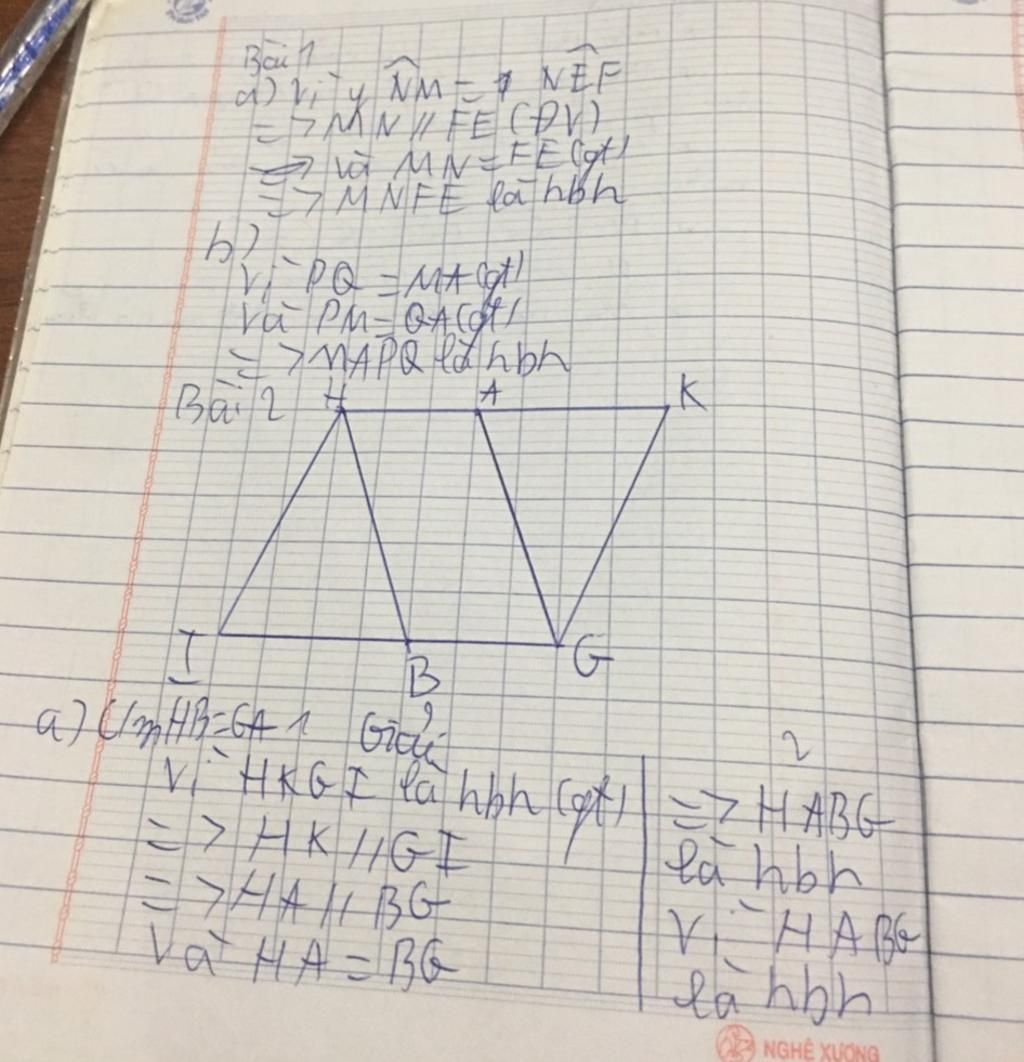 Bài 1
a) Vì y N̂M = NÊF
=> MN // FE (ĐV)
và MN = FE (gt)
=> MNFE là hbh
b)
Vì PQ = MA (gt)
và PM = QA (gt)
=> MAPQ là hbh
Bài 2
H A K
I B G
a) C/m HB = GA 1 Giải
Vì HKGI là hbh (gt)
=> HK // GI
=> HA // BG
Và HA = BG
2
=> HABG
là hbh
Vì HABG
là hbh
NGHÊ XƯƠNG